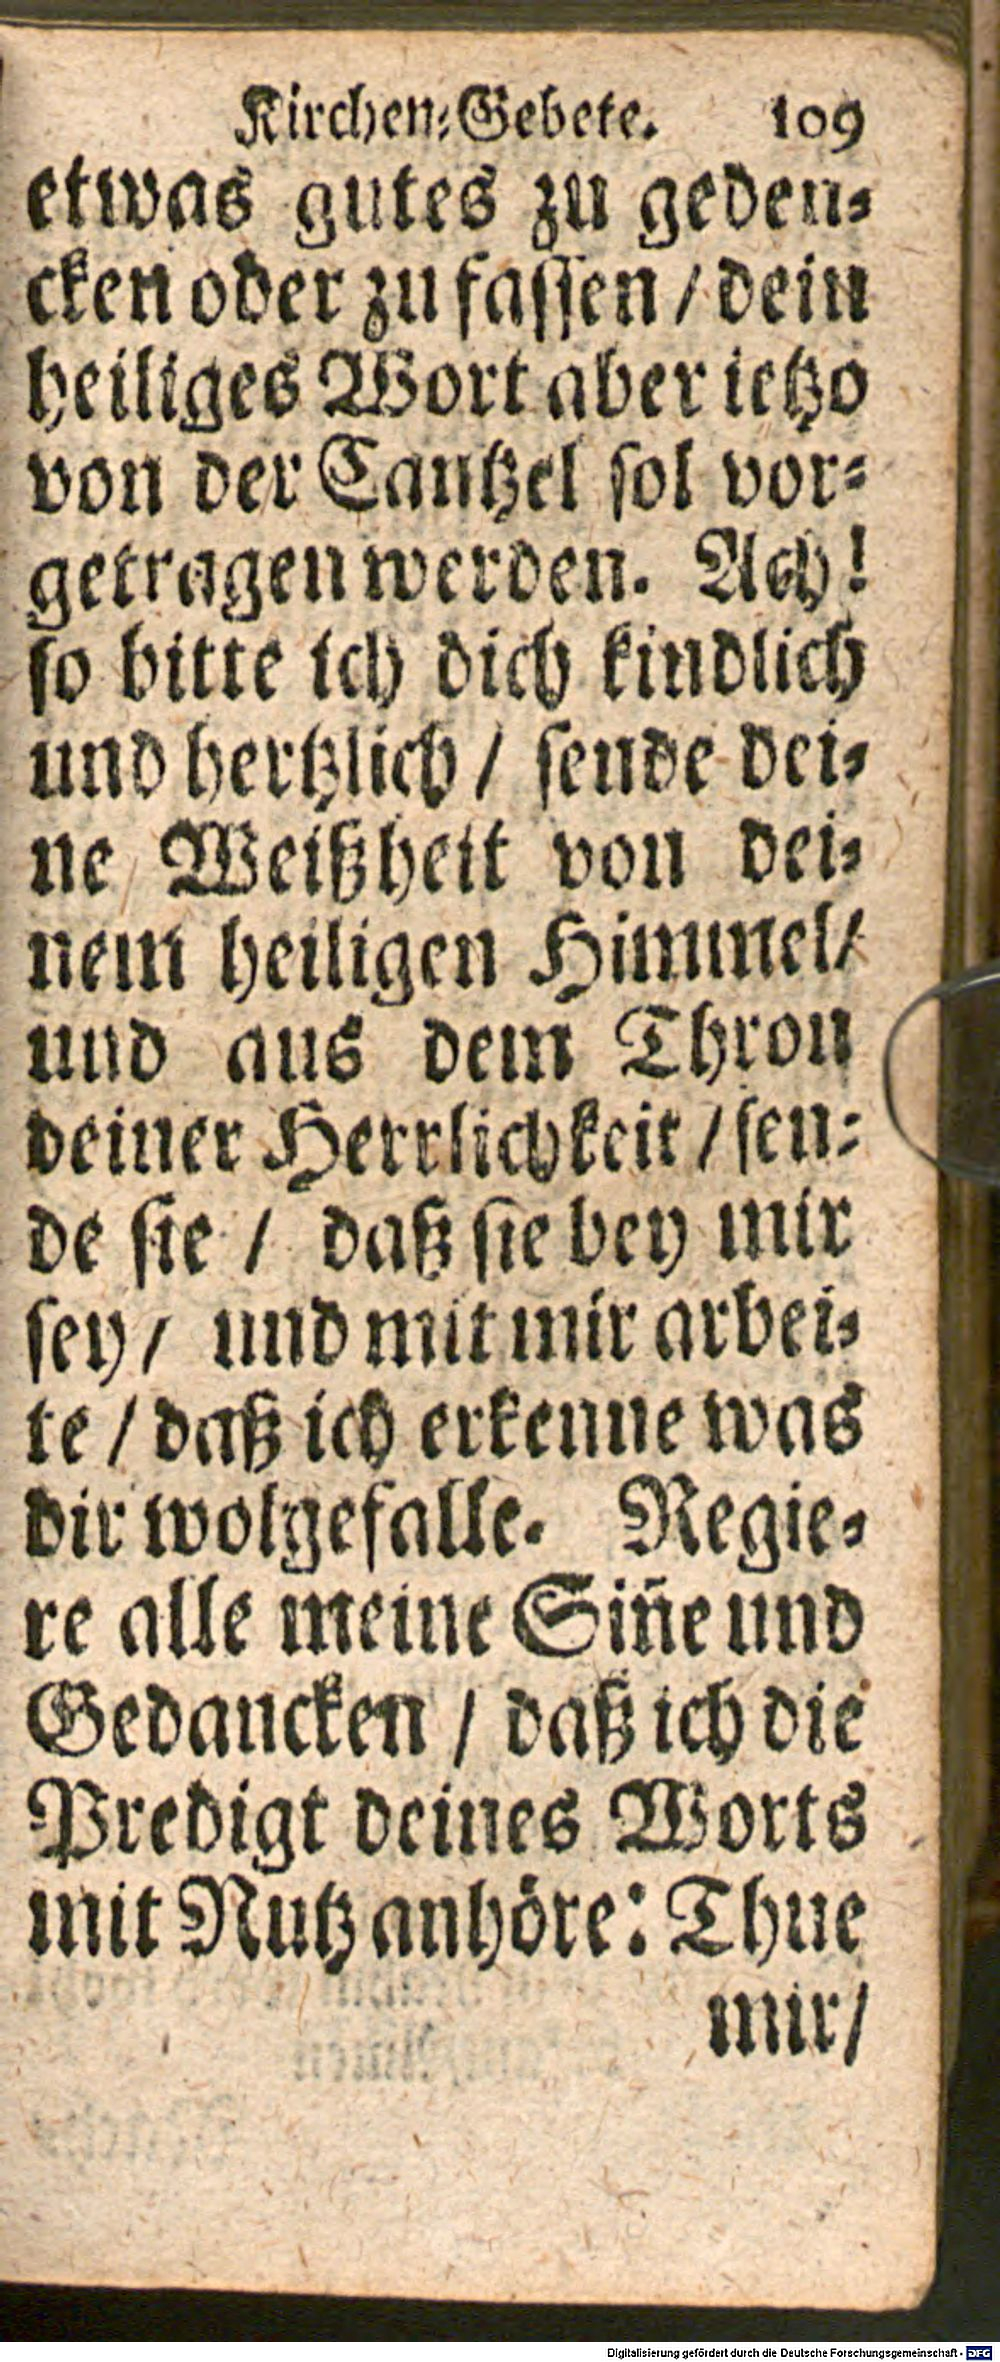 Kirchen-Gebete. 109
etwas gutes zu geden-
cken oder zu fassen / dein
heiliges Wort aber ietzo
von der Cantzel sol vor-
getragen werden. Ach!
so bitte ich dich kindlich
und hertzlich / sende dei-
ne Weißheit von dei-
nem heiligen Himmel/
und aus dem Thron
deiner Herrlichkeit / sen-
de sie / daß sie bey mir
sey / und mit mir arbei-
te / daß ich erkenne was
dir wolgefalle. Regie-
re alle meine Sin̄e und
Gedancken / daß ich die
Predigt deines Worts
mit Nutz anhöre: Thue
mir/
Digitalisierung gefördert durch die Deutsche Forschungsgemeinschaft - DFG